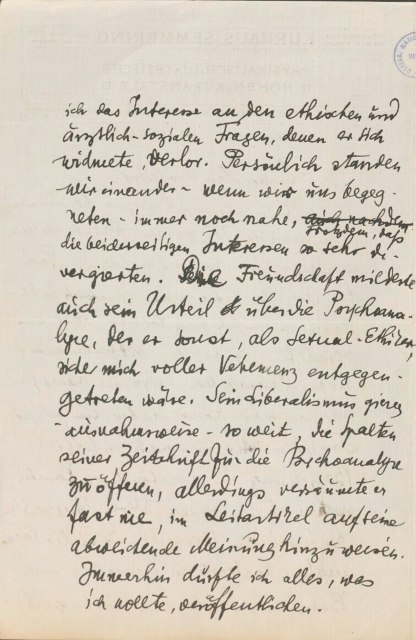 ich das Interesse an den ethischen und
ärztlich-sozialen Fragen, denen er sich
widmete, verlor. Persönlich standen
wir einander - wenn wir uns begeg-
neten - immer noch nahe, auch nachdem
trotzdem, daß
die beiderseitigen Interessen so sehr di-
vergierten. Seine Freundschaft milderte
auch sein Urteil über die Psychoana-
lyse, der er sonst, als Sexual-Ethiker,
sicherlich voller Vehemenz entgegen-
getreten wäre. Sein Liberalismus gieng
- ausnahmsweise - so weit, die Spalten
seiner Zeitschrift für die Psychoanalyse
zu öffnen, allerdings versäumte er
fast nie, im Leitartikel auf seine
abweichende Meinung hinzuweisen.
Immerhin durfte ich alles, was
ich wollte, veröffentlichen.